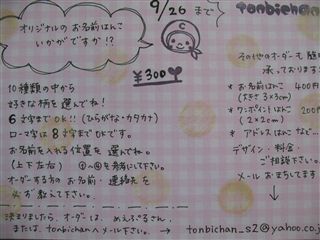 9/26 まで
tonbichan
オリジナルの お名前はんこ
いかがですか!?
C
¥300
10種類の中から
好きな柄を 選んでね!
6文字までOK!! (ひらがな・カタカナ)
ローマ字は 8文字までOKです。
お名前を入れる位置を 選んでね。
(上下左右)
を参考にして下さい。
オーダーする方の お名前・連絡先を
必ず教えて下さい。
決まりましたら、オーダーは、めえぷるさん、
または、tonbichanへメール下さい。 → tonbichan_s2@yahoo.co.j
その他のオーダーも
承っております
* お名前はんこ 400円
(大きさ 3×3cm)
* ワンポイント 200円
(2×2cm)
* アドレスはんこ など…
デザイン・料金
ご相談下さい。
メールお待ちしてます